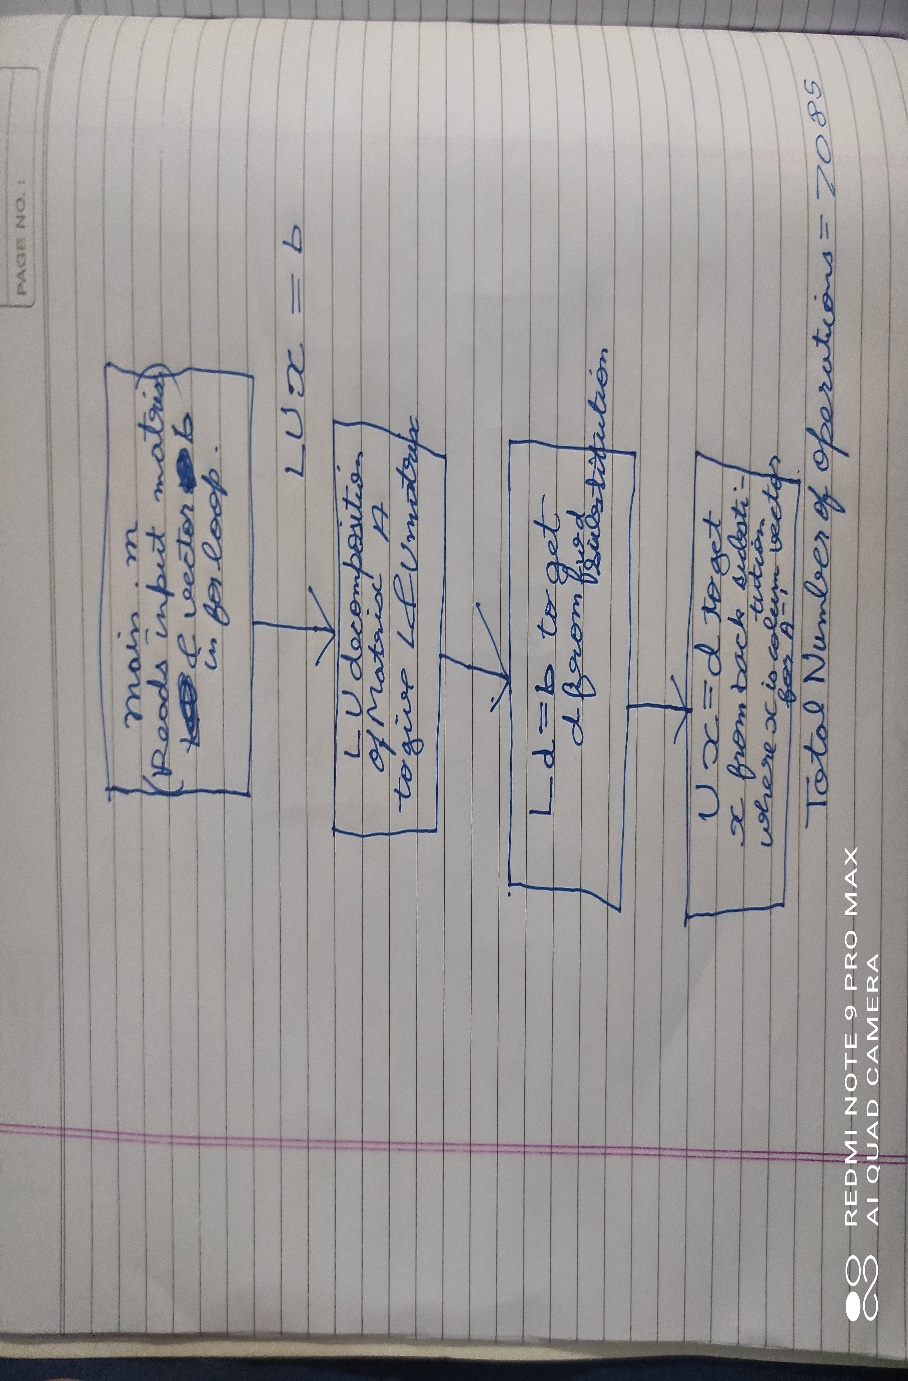 PAGE NO. :
main m
(Reads input matrix)
& vector b
in for loop.
LUx = b
LU decomposition
of Material A
to give L & U matrix
Ld = b to get
d from fwd
substitution
Ux = d to get
x from back substi-
tution
where x is colum vector
for A⁻¹
Total Number of operations = 7085
REDMI NOTE 9 PRO MAX
AI QUAD CAMERA